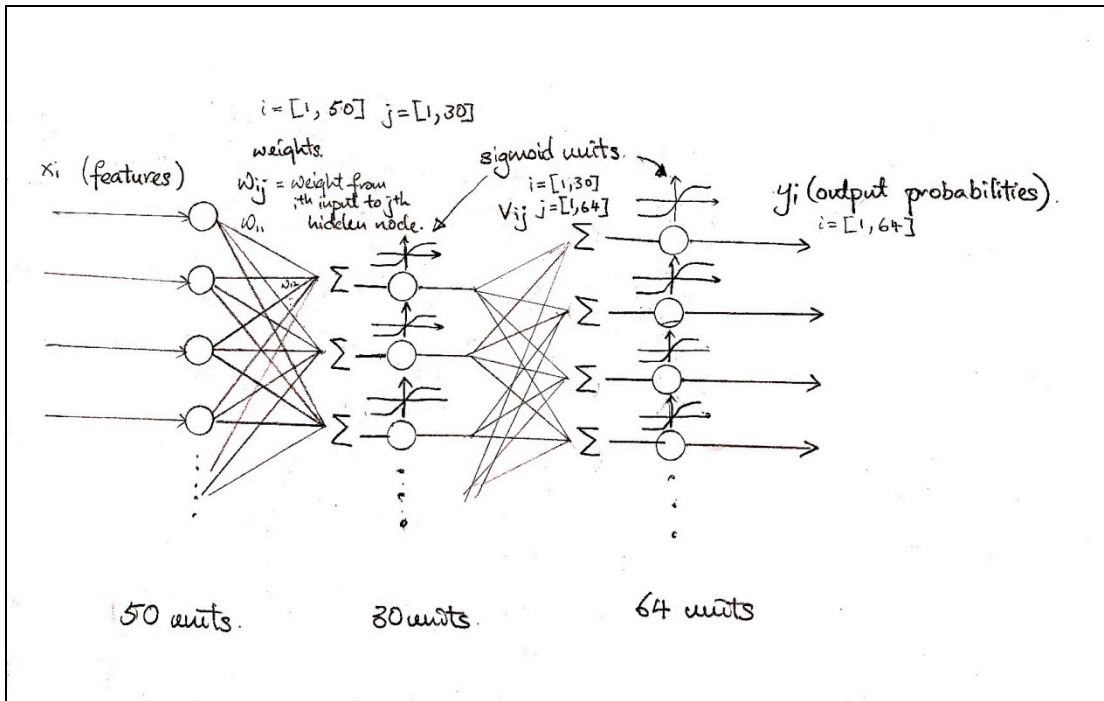 i = [1, 50] j = [1, 30]
weights.
wij = weight from
ith input to jth
hidden node.
xi (features)
w11
w12
sigmoid units.
i = [1, 30]
Vij j = [1, 64]
yi (output probabilities).
i = [1, 64]
Σ
Σ
Σ
Σ
Σ
Σ
Σ
50 units.
30 units.
64 units